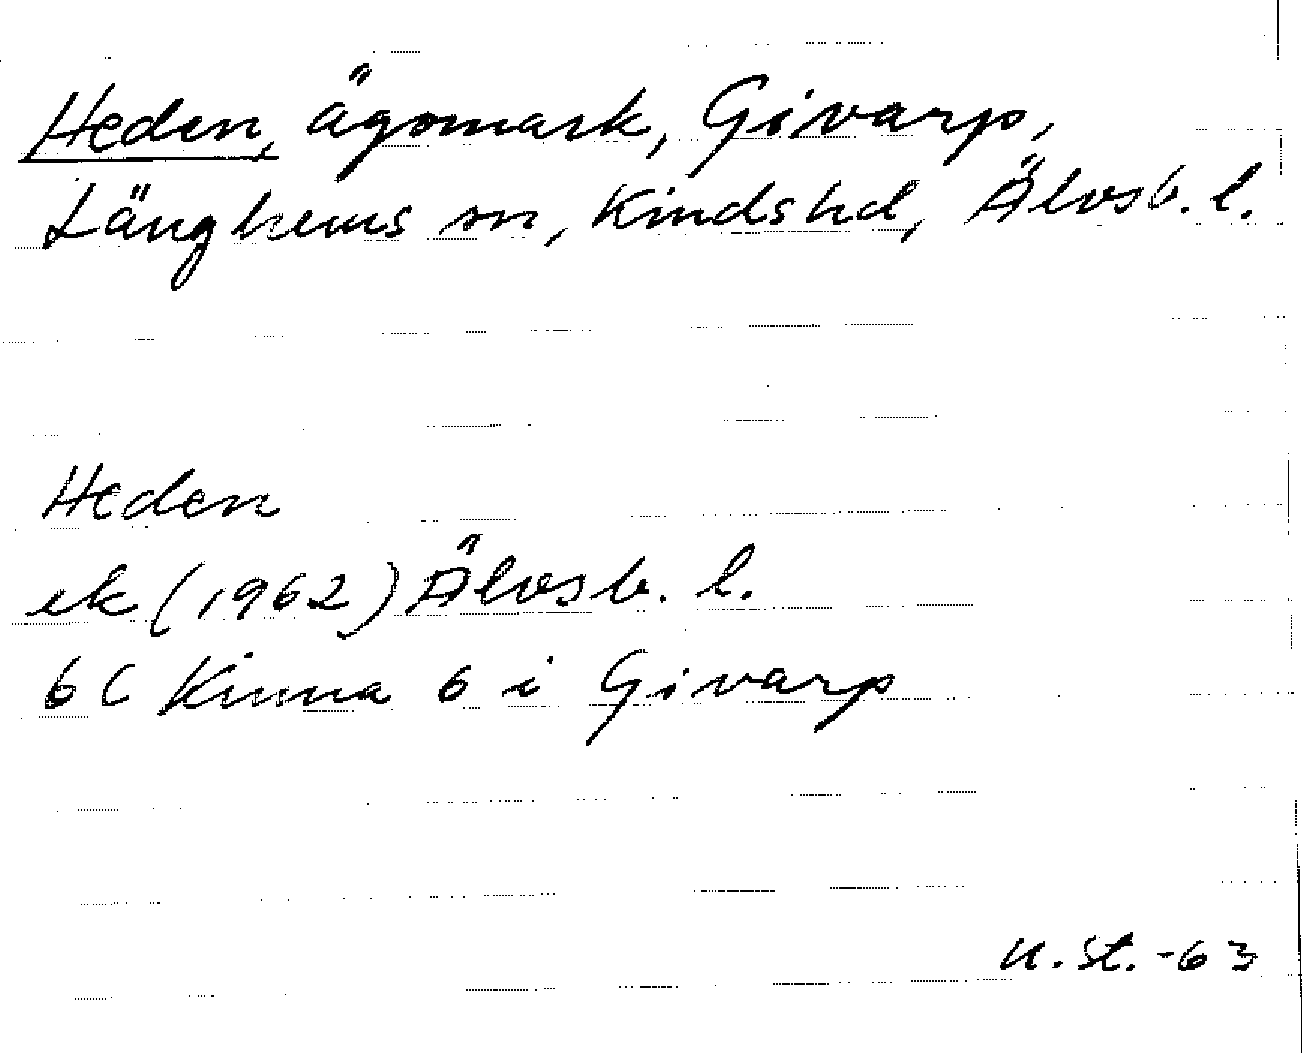 Heden, ägomark, Givarp,
Länghems sn, Kinds hd, Älvsb. l.
Heden
ek (1962) Älvsb. l.
6 C Kinna 6 i Givarp
U. St. -63